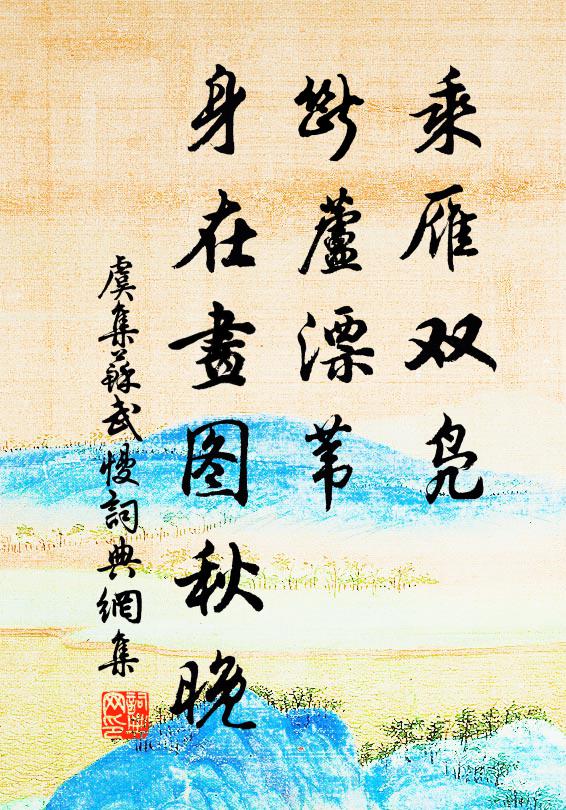 乘雁双凫
断蘆漂苇
身在畫图秋晚
虞集蘇武慢詞典網集